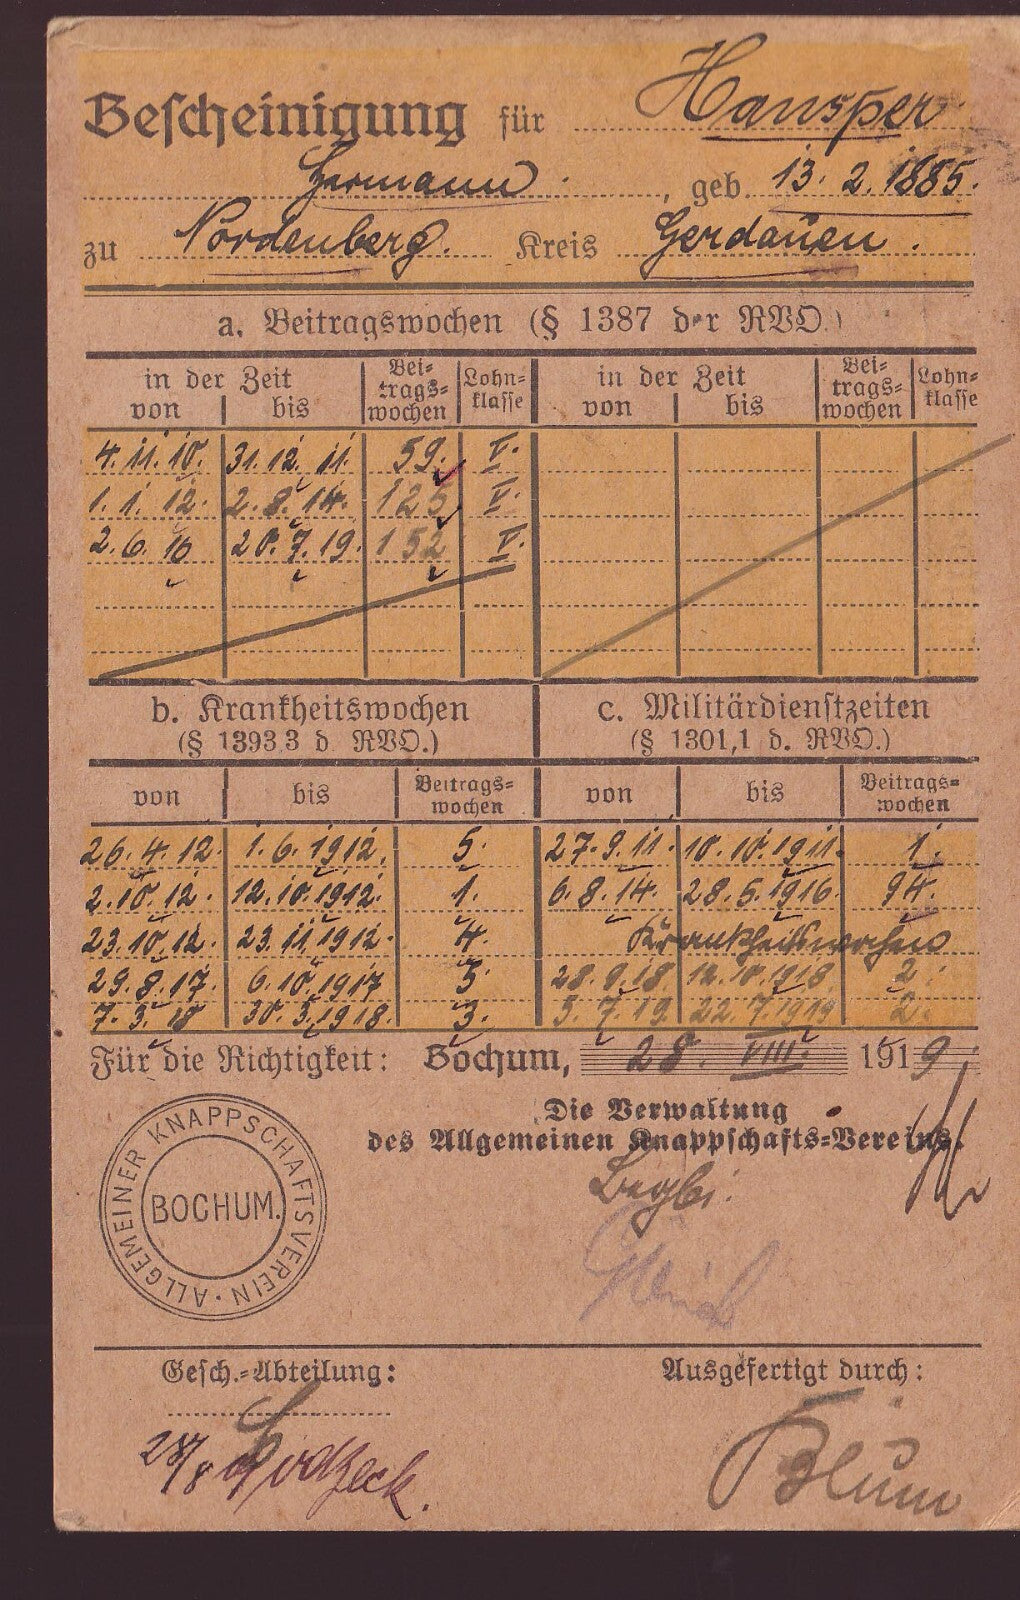 Bescheinigung für Hansper
Hermann, geb. 13. 2. 1885.
zu Nordenberg. Kreis Gerdauen.
a. Beitragswochen (§ 1387 der RVO.)
in der Zeit von | bis | Beitragswochen | Lohnklasse | in der Zeit von | bis | Beitragswochen | Lohnklasse
4. 11. 10. | 31. 12. 11. | 59. | V.
1. 1. 12. | 2. 8. 14. | 125 | V.
2. 6. 16 | 20. 7. 19. | 152 | V.
b. Krankheitswochen
(§ 1393,3 d. RVO.)
c. Militärdienstzeiten
(§ 1301,1 d. RVO.)
von | bis | Beitragswochen | von | bis | Beitragswochen
26. 4. 12. | 1. 6. 1912. | 5. | 27. 9. 11. | 10. 10. 1911. | 1.
2. 10. 12. | 12. 10. 1912. | 1. | 6. 8. 14. | 28. 5. 1916. | 94.
23. 10. 12. | 23. 11. 1912. | 4. | Krankheitswochen
29. 8. 17. | 6. 10. 1917 | 5. | 28. 9. 18. | 12. 10. 1918. | 2.
7. 3. 18 | 30. 3. 1918. | 3. | 5. 7. 19. | 22. 7. 1919 | 2.
Für die Richtigkeit: Bochum, 28. VIII. 1919.
Die Verwaltung
des Allgemeinen Knappschafts-Vereins.
ALLGEMEINER KNAPPSCHAFTSVEREIN · BOCHUM.
Gesch.-Abteilung:
Ausgefertigt durch:
28/8
Blum